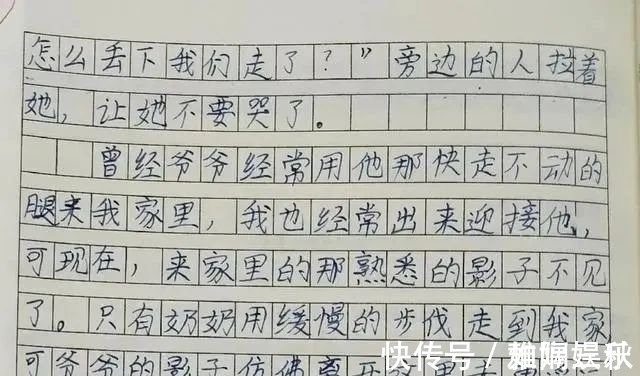 怎么丢下我们走了？”旁边的人拉着
她，让她不要哭了。
曾经爷爷经常用他那快走不动的
腿来我家里，我也经常出来迎接他，
可现在，来家里的那熟悉的影子不见
了。只有奶奶用缓慢的步伐走到我家
可爷爷的影子仿佛离开
快传号／